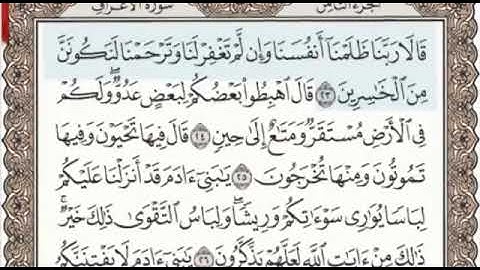 سورة الأعراف الجزء الثامن
قَالَا رَبَّنَا ظَلَمْنَآ أَنفُسَنَا وَإِن لَّمْ تَغْفِرْ لَنَا وَتَرْحَمْنَا لَنَكُونَنَّ
مِنَ ٱلْخَٰسِرِينَ ٢٣ قَالَ ٱهْبِطُوا۟ بَعْضُكُمْ لِبَعْضٍ عَدُوٌّ ۖ وَلَكُمْ
فِى ٱلْأَرْضِ مُسْتَقَرٌّ وَمَتَٰعٌ إِلَىٰ حِينٍ ٢٤ قَالَ فِيهَا تَحْيَوْنَ وَفِيهَا
تَمُوتُونَ وَمِنْهَا تُخْرَجُونَ ٢٥ يَٰبَنِىٓ ءَادَمَ قَدْ أَنزَلْنَا عَلَيْكُمْ
لِبَاسًا يُوَٰرِى سَوْءَٰتِكُمْ وَرِيشًا ۖ وَلِبَاسُ ٱلتَّقْوَىٰ ذَٰلِكَ خَيْرٌ ۚ
ذَٰلِكَ مِنْ ءَايَٰتِ ٱللَّهِ لَعَلَّهُمْ يَذَّكَّرُونَ ٢٦ يَٰبَنِىٓ ءَادَمَ لَا يَفْتِنَنَّكُمُ